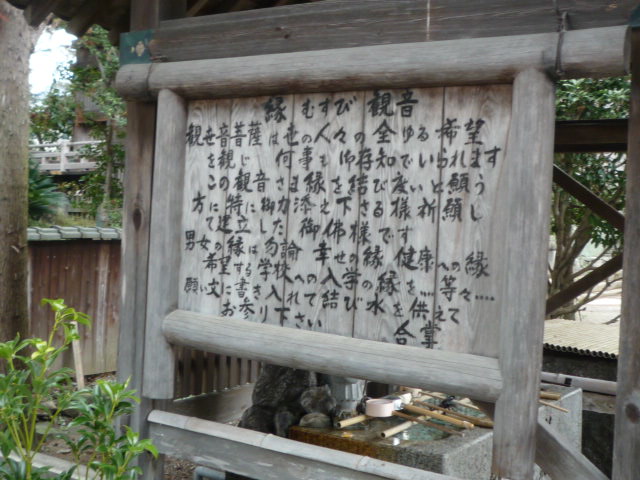 縁むすび観音
観世音菩薩は世の人々の全ゆる希望
を観じ何事も御存知でいられます
この観音は縁を結び度いと願う
方に特に御力添え下さる様祈願し
て建立された御仏様です
男女の縁は勿論 幸 の縁 健康への縁
希望する学校への入学の縁 等々……
願い文に書き入れ結び水を供えて
お参り下さい 合掌